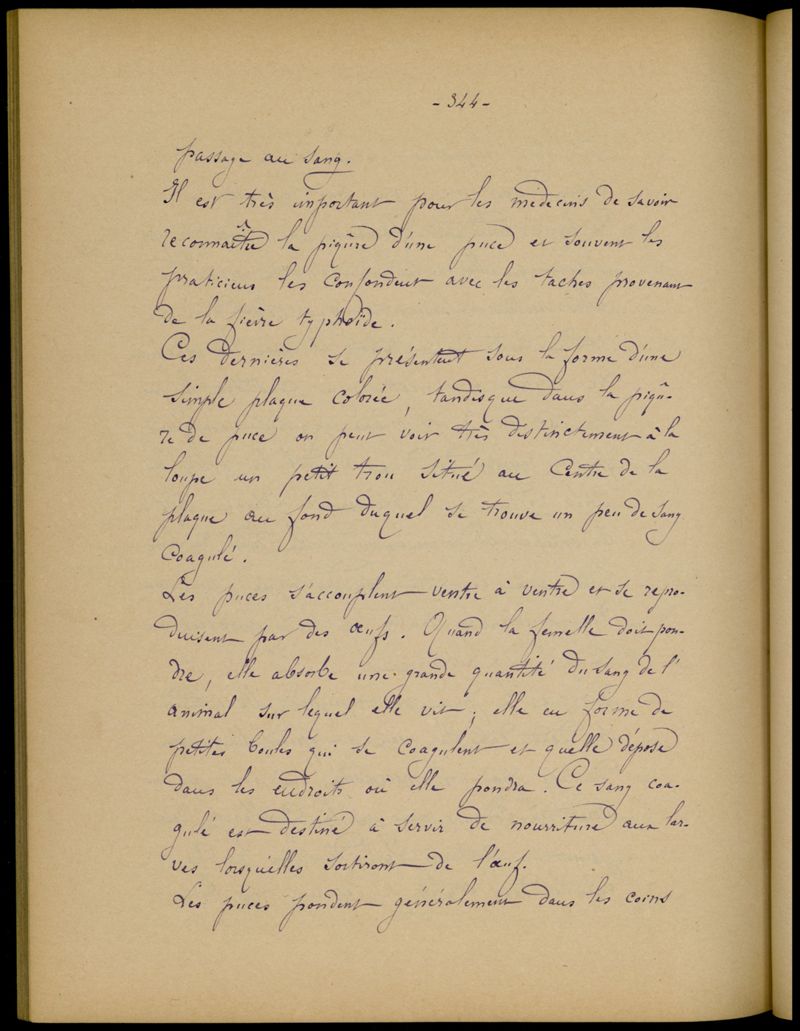 - 344 -
passage au sang.
Il est très important pour les medecins de savoir
reconnaître la piqûre d'une puce et souvent les
praticiens les confondent avec les taches provenant
de la fièvre typhoïde.
Ces dernières se présentent sous la forme d'une
simple plaque colorée, tandisque dans la piqû-
re de puce on peut voir très distinctement à la
loupe un petit trou situé au centre de la
plaque au fond duquel se trouve un peu de sang
coagulé.
Les puces s'accouplent ventre à ventre et se repro-
duisent par des œufs. Quand la femelle doit pon-
dre, elle absorbe une grande quantité du sang de l'
animal sur lequel elle vit; elle en forme de
petites boules qui se coagulent et quelle dépose
dans les endroits où elle pondra. Ce sang coa-
gulé est destiné à servir de nourriture aux lar-
ves lorsqu'elles sortiront de l'œuf.
Les puces pondent généralement dans les coins